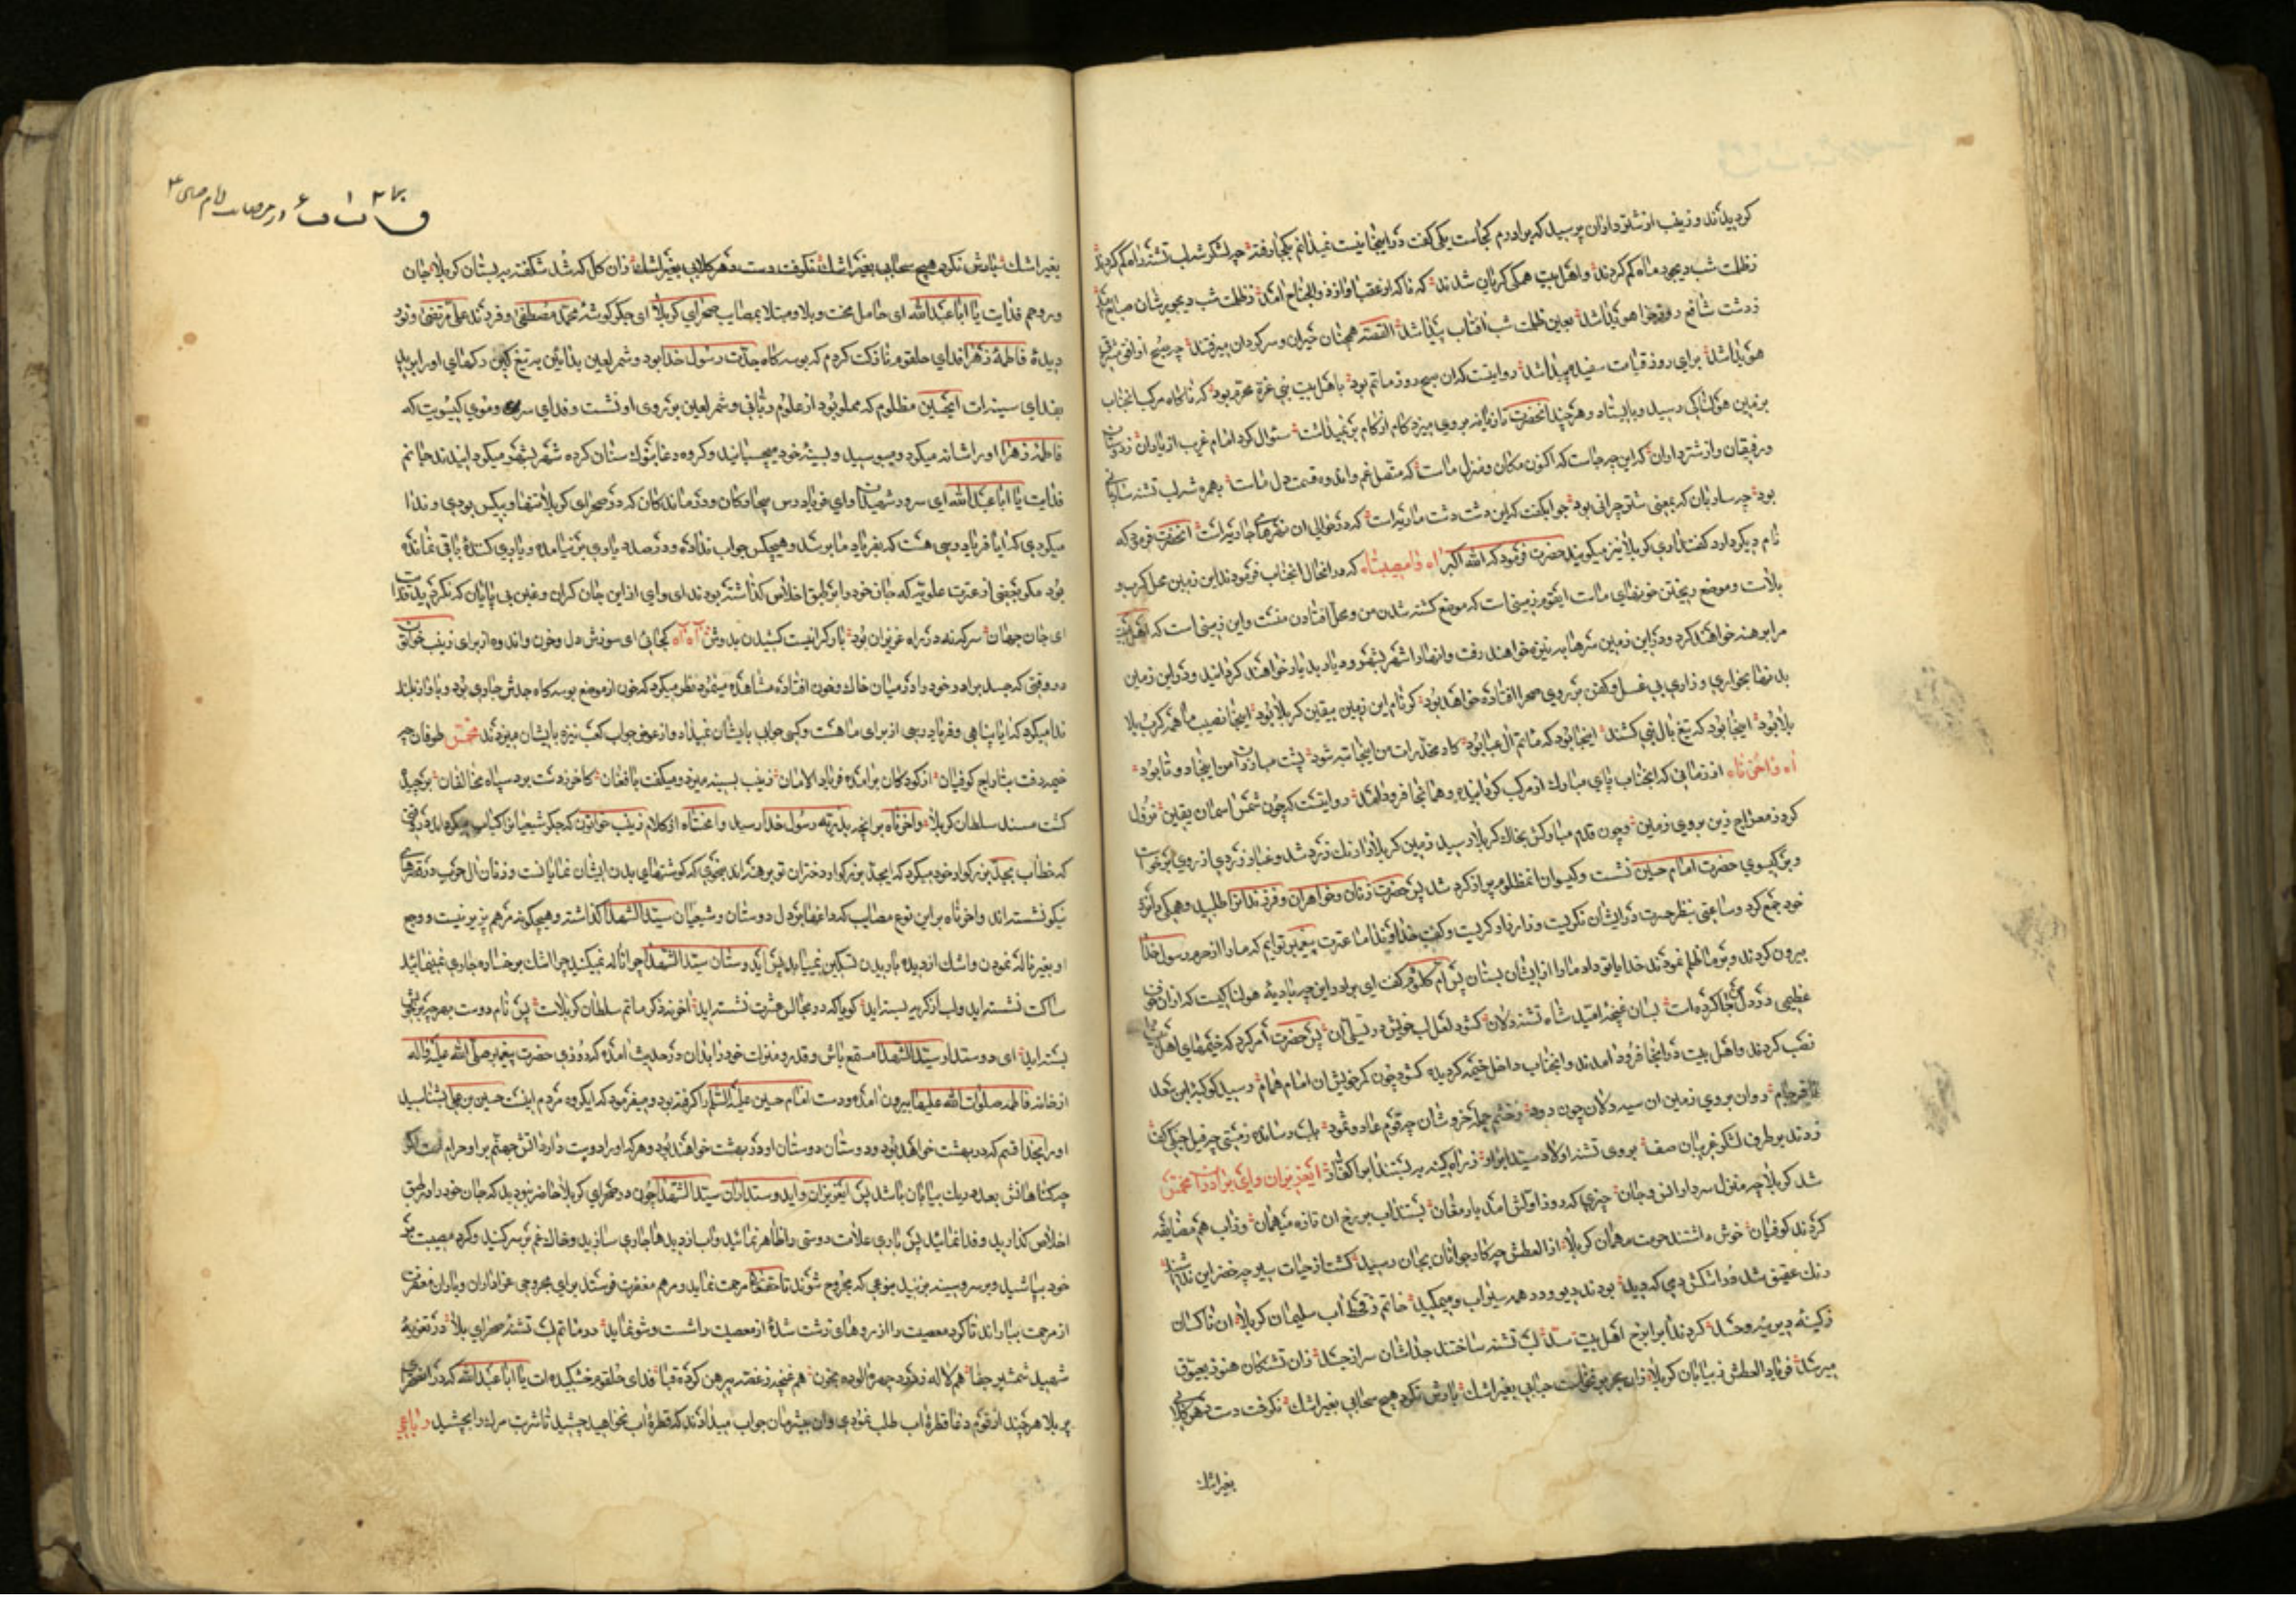 کردیدند و زینب از شترداران پرسید که برادرم کجاست یکی گفت در اینجا نیست نمیدانم بکجا رفته
ز ظلمت شب دیجور ماه کم کردند و اهل بیت همکی کریان شدند که ناکاه از عقب اواز ذوالجناح امد ز ظلمت شب دیجور
بعین ظلمت شب افتاب پیدا شد القصه همچنان حیران و سرکردان میرفتند چه صبح از افق
هویدا شد برای روز قیامت سفیده پیدا شد روایتست که ان صبح روز ماتم بود باهل بیت نبی غرهٔ محرم بود که ناکاه مرکب انجناب
بر زمین هولناکی رسید و بایستاد و هرچند انحضرت تازیانه بر وی میزد کام از کام بر نمیداشت سئوال کرد امام غریب از یاران
و رفیقان و از شترداران که این چه جاست که اکنون مکان و منزل ماست که متصل غم و اندوه قسمت دل ماست
بود چه ساربان که بمعنی شتر چرانی بود جواب گفت که این دشت دشت ماریه است که در حوالی ان انحضرت فرمود که
نام دیکر دارد گفتند اری کربلا نیز میکویند حضرت فرمود که الله اکبر اه وامصیبتاه که در انحال انجناب فرمودند این زمین محل کرب و
بلاست و موضع ریختن خونهای ماست ایقوم زمینی است که موضع کشته شدن من و محل افتادن منست و این زمینی است که اهل بیت
مرا برهنه خواهند کرد و در این زمین سرها بر نیزه خواهند رفت و انها را شهر بشهر و دیار بدیار خواهند کردانید و در این زمین
بدنها بخواری و زاری بی غسل و کفن بر روی صحرا افتاده خواهد بود کر نام این زمین بیقین کربلا بود اینجا نصیب ما همه کرب بلا
بلا بود اینجا بود که تیغ بال نبی کشند اینجا بود که ماتم ال عبا بود کار مخدرات من اینجا تبه شود پشت مبارزان من اینجا دوتا بود
اه واحزناه از زمانی که انجناب پای مبارک از مرکب کردانیده و همانجا فرود امد روایتست که چون شمس اسمان یقین نزول
کرد ز معراج زین بروی زمین و چون قدم مبارکش بخاک کربلا رسید زمین کربلا را رنک زرد شد و غبار زردی از روی
و بر کیسوی حضرت امام حسین نشست و کیسوان انمظلوم پر از کرد شد پس حضرت زنان و خواهران و فرزندانرا طلبید و همکی را نزد
خود جمع کرد و ساعتی بنظر حسرت در ایشان نکریست و زار زار کریست و گفت خداوندا ما عترت پیغمبر توایم که ما را از حرم رسول خدا
بیرون کردند و بر ما ظلم نمودند خدایا تو داد ما را از ایشان بستان پس ام کلثوم گفت ای برادر این چه بادیهٔ هولناکیست که از ان خوف
عظیمی در دل ما جا کرده است بسان غنچه امید شاه تشنه دلان کشود لعل لب خویش در تسلی ان پس حضرت امر کرد که خیمهای اهل بیت
نصب کردند و اهل بیت در انجا فرود امدند و انجناب داخل خیمه کردیده کشود چون کمر خویش ان امام همام رسید کوکبهٔ ابن سعد
نافرجام روان بروی زمین ان سیه دلان چون دود ز خشم جمله خروشان چه قوم عاد و ثمود
زدند بر طرف لشکر غریبان صف بروی تشنه اولاد سید ابرار ز راه کینه ببستند اب را کفار ایعزیزان وای برادران مخمس
شد کربلا چه منزل سردار انس و جان چیزی که در ورود اوکش امد بارمغان بستند اب بر رخ ان تازه میهمان از اب هم مضایقه
کردند کوفیان خوش داشتند حرمت مهمان کربلا از العطش چه کار جوانان بجان رسید کشت از حیات سیر چه خضر این ندا
رنک عقیق شد در اشکش دمی که دید بودند دیو و دد همه سیراب و میمکید خاتم ز قحط اب سلیمان کربلا ان ناکسان
ز کینهٔ دیرینه و حسد کردند برابرخ اهل بیت سد لب تشنه ساختند جداشان سر از جسد زان تشنکان هنوز بعیوق
میرسد فریاد العطش ز بیابان کربلا بارش نکرد هیچ سحابی بغیر اشک نکرفت دست دهر کلابی
بغیر اشک
در مرخصات امام
بغیر اشک بارش نکرد هیچ سحابی بغیر اشک نکرفت دست دهر کلابی بغیر اشک زان کل که شد شکفته به بستان کربلا
فدایت یا اباعبدالله ای حامل محنت و بلا و مبتلا بمصایب صحرای کربلا ای جکر کوشهٔ محمد مصطفی و فرزند علی مرتضی و نور
دیدهٔ فاطمهٔ زهرا فدای حلقوم نازکت کردم که بوسه کاه جدت رسول خدا بود و شمر لعین بد ائین به تیغ کین
بفدای سینه‌ات ایحسین مظلوم که مملو بود از علوم ربانی و شمر لعین بر روی او نشست و فدای سر و موی کیسویت که
فاطمهٔ زهرا او را شانه میکرد و میبوسید و بسینهٔ خود میچسبانید و کروه دغا بنوک سنان کرده شهر بشهر میکردانیدند جانم
فدایت یا اباعبدالله ای سرور شهیدان و ای فریاد رس بیچارکان و درماندکان که در صحرای کربلا تنها و بیکس بودی و ندا
میکردی که ایا فریادرسی هست که بفریاد ما برسد و هیچکس جواب نداده و در صدد یاوری بر نیامده و یاوری کنندهٔ باقی نمانده
بود مکر بعضی از عترت علویه که جان خود را بر طبق اخلاص کذاشته بودند ای وای از این جان کران و غبن بی پایان که نکردید فدا
ای جان جهان سر که نه در راه عزیزان بود بار کرانیست کشیدن بدوش آه آه کجائی ای سوزش دل و خون و اندوه از برای زینب خواتون
در وقتی که جسد برادر خود را در میان خاک و خون افتاده مشاهده مینمود نظر میکرد که خون از موضع بوسه کاه جدش جاری بود و باواز بلند
ندا میکرد که ایا پناهی و فریادرسی از برای ما هست و کسی جواب بایشان نمیداد و از عوض جواب کعب نیزه بایشان میزدند مخمس طوفان چه
خیمه رفت بتاراج کوفیان از کودکان برامده فریاد الامان زینب بسینه میزد و میکفت با فغان کاخر ز دست برد سپاه مخالفان برچیده
کشت مسند سلطان کربلا واحزناه بر انچه بذریهٔ رسول خدا رسید وا محنتاه از کلام زینب خواتون که جکر شیعیانرا کباب میکرد
که خطاب بجد بزرکوار خود میکرد که ایجد بزرکوار دختران تو برهنه‌اند بنحوی که کوشتهای بدن ایشان نمایانست و زنان ال حرب در قصرهای
نیکو نشسته‌اند واحزناه بر این نوع مصایب که داغها بر دل دوستان و شیعیان سیدالشهدا کذاشته و هیچکونه مرهم پذیر نیست و وجع
او بغیر ناله نمودن و اشک از دیده باریدن تسکین نمییابد پس ای دوستان سیدالشهدا چرا ناله نمیکنید چرا اشک بر رخساره جاری نمینمائید
ساکت نشسته‌اید و لب از کریه بسته‌اید کویا که در مجالس عشرت نشسته‌اید اخر نه ذکر ماتم سلطان کربلاست پس نام دوست بهر چه بر خویش
بسته‌اید ای دوستدار سیدالشهدا مستمع باش و قدر و منزلت خود را بدان در حدیث امده که روزی حضرت پیغمبر صلی الله علیه و اله
از خانه فاطمه صلوات الله علیها بیرون امده و دست امام حسین علیه السلام را کرفته بود و میفرمود که ایکروه مردم اینست حسین بن علی بشناسید
او را بخدا قسم که در بهشت خواهد بود و دوستان دوستان او در بهشت خواهند بود و هرکه او را دوست دارد اتش جهنم بر او حرام است اکر
چه کناهانش بعدد ریک بیابان باشد پس ایعزیزان و ای دوستداران سیدالشهدا چون در صحرای کربلا حاضر نبودید که جان خود را در طبق
اخلاص کذارید و فدا نمائید پس باری علامت دوستی را ظاهر نمائید و اب از دیدها جاری سازید و خاک غم بر سر کنید و کرد مصیبت بر
خود بپاشید و بر سر و سینه بزنید بنوعی که مجروح شوند تا حقتعالی مرحمت نماید و مرهم مغفرت فرستد برای مجروحی عزاداران و باران مغفرت
از مرحمت بباراند تا کرد معصیت را از روهای زشت شدهٔ از معصیت را شست و شو نماید در ماتم لب تشنهٔ صحرای بلا در تعزیهٔ
شهید شمشیر جفا هم لاله ز درد چهره الوده بخون هم غنچه ز غصه پیرهن کرده قبا فدای حلقوم خشکیده‌ات یا اباعبدالله که در انصحرای
پر بلا هرچند از قوم دغا قطرهٔ اب طلب نمودی و ان بیشرمان جواب میدادند که قطرهٔ اب نخواهید چشید تا شربت مرک را بچشید رباعی